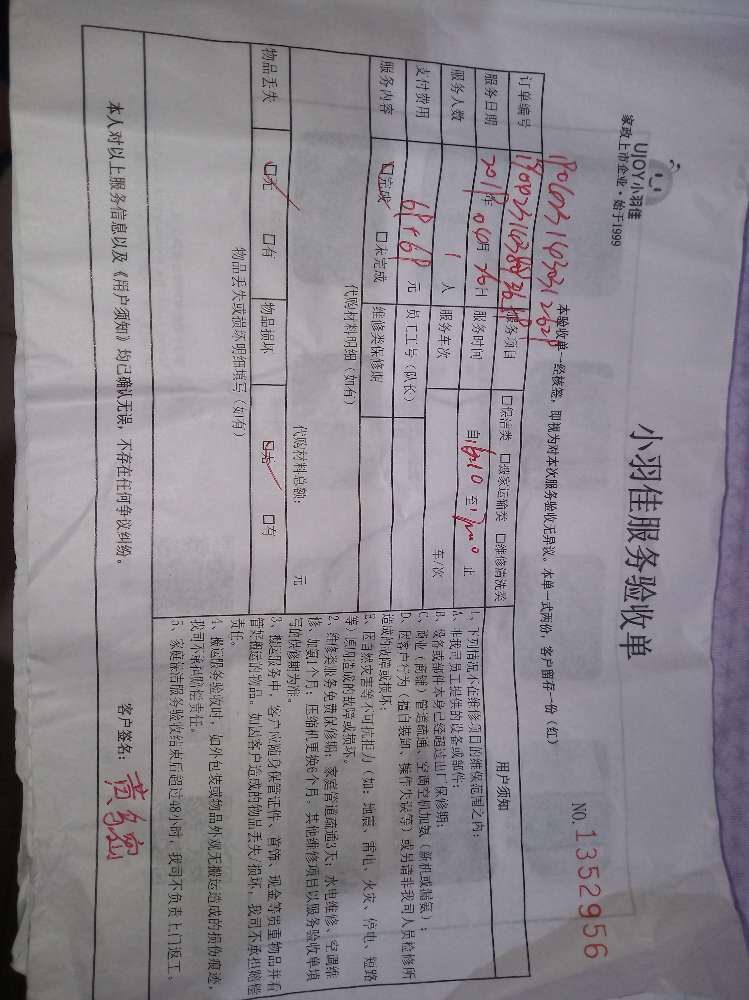 UJOY小羽佳
家政上市企业·始于1999
小羽佳服务验收单
NO.1352956
本验收单一经核签，即视为对本次服务验收无异议。本单一式两份，客户留存一份（红）
订单编号
服务项目 □保洁类 □搬家运输类 □维修清洗类
服务日期 2019年04月26日 服务时间 自 至 止
服务人数 1人 服务车次 车/次
支付费用 68+68元 员工工号（队长）
服务内容 □完成 □未完成 维修类保修期
代购材料明细（如有）
代购材料总额： 元
物品丢失 □无 □有 物品损坏 □无 □有
物品丢失或损坏明细填写（如有）
用户须知
1、下列情况不在维修项目的维保范围之内：
A、非我司员工提供的设备或部件；
B、设备或部件本身已经超过出厂保修期；
C、商业（商铺）管道疏通、空调空机加氨（新机或漏氨）；
D、因客户行为（擅自装卸、操作失误等）或另请非我司人员检修所
造成的故障或损坏；
E、因自然灾害等不可抗拒力（如：地震、雷电、火灾、停电、短路
等）原因造成的故障或损坏。
2、维修类服务免费保修期：家庭管道疏通3天；水电维修、空调维
修、加氨1个月；压缩机更换6个月。其他维修项目以服务验收单填
写的保修期为准。
3、搬运服务中，客户应随身保管证件、首饰、现金等贵重物品并看
管好搬运的物品。如因客户造成的物品丢失/损坏，我司不承担赔偿
责任。
4、搬运服务验收时，如外包装或物品外观无搬运造成的损伤痕迹，
我司不承担赔偿责任。
5、家庭保洁服务验收结束后超过48小时，我司不负责上门返工。
本人对以上服务信息以及《用户须知》均已确认无误，不存在任何争议纠纷。
客户签名：